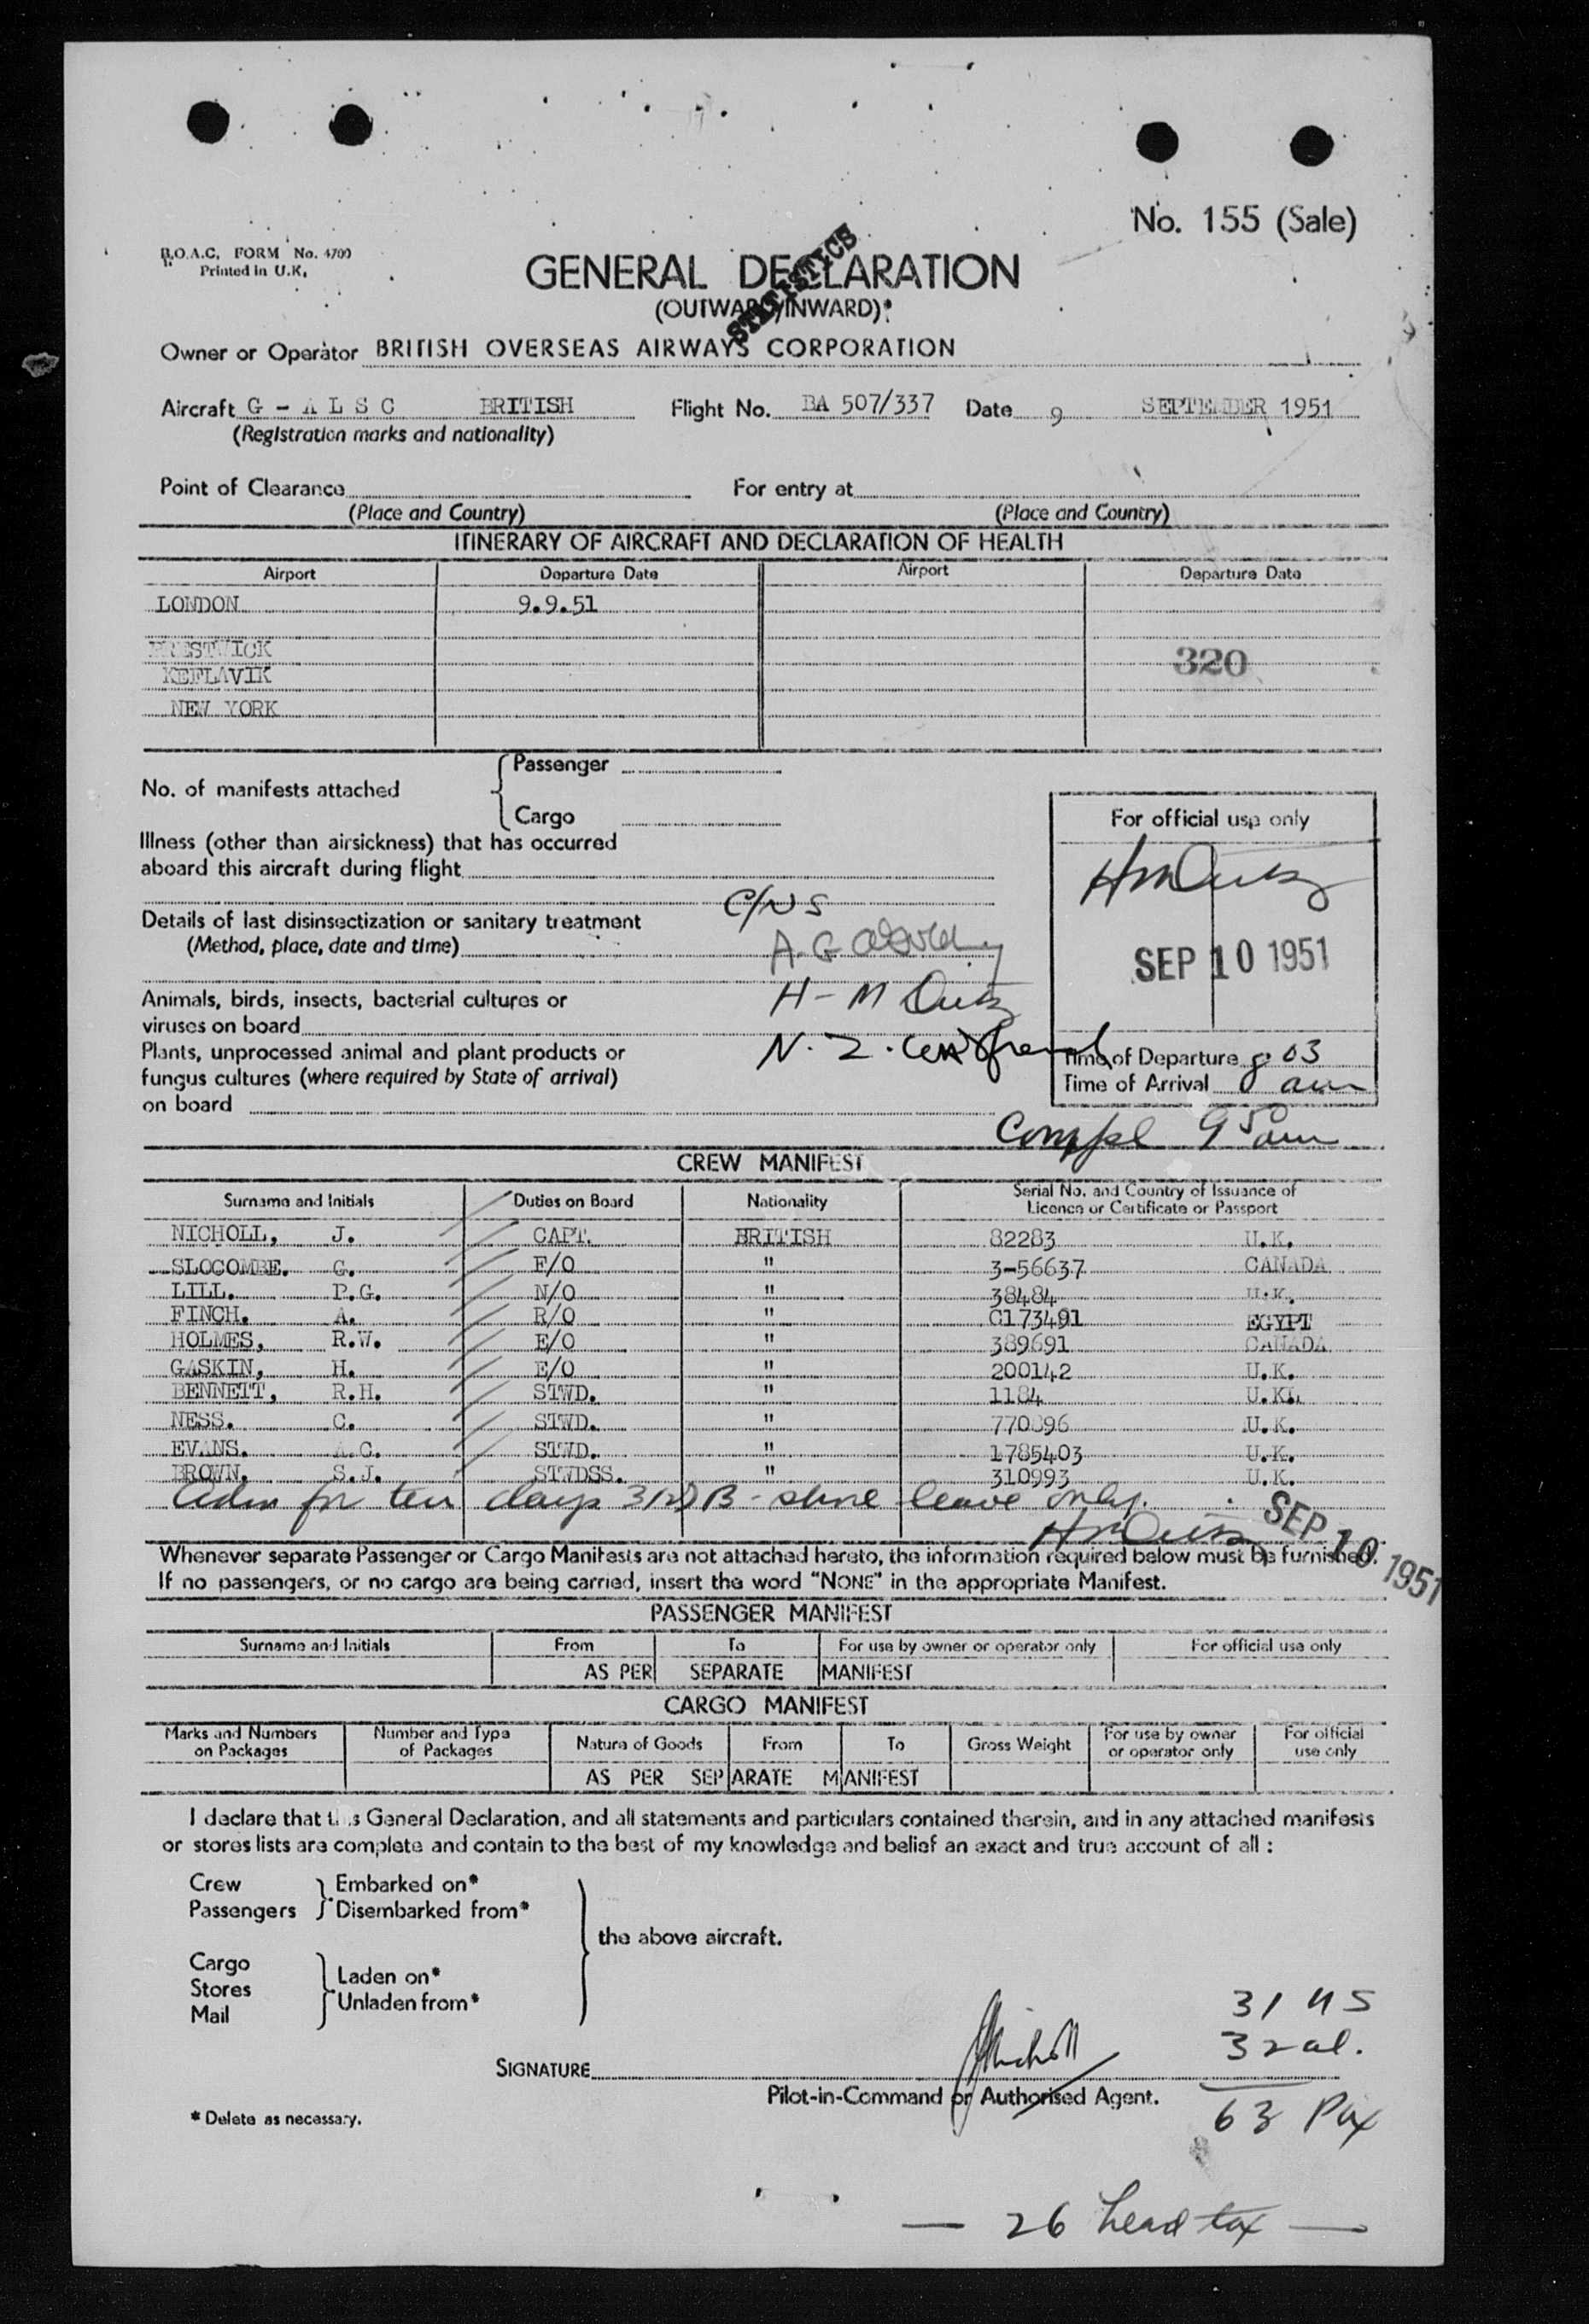 No. 155 (Sale)
B.O.A.C. FORM No. 4700
Printed in U.K.
STATISTICS
GENERAL DECLARATION
(OUTWARD/INWARD)*
Owner or Operator BRITISH OVERSEAS AIRWAYS CORPORATION
Aircraft G - A L S C BRITISH Flight No. BA 507/337 Date 9 SEPTEMBER 1951
(Registration marks and nationality)
Point of Clearance For entry at
(Place and Country) (Place and Country)
ITINERARY OF AIRCRAFT AND DECLARATION OF HEALTH
Airport Departure Date Airport Departure Date
LONDON 9.9.51
PRESTWICK
KEFLAVIK 320
NEW YORK
No. of manifests attached
Passenger
Cargo
For official use only
Illness (other than airsickness) that has occurred
aboard this aircraft during flight
C/NS
Details of last disinsectization or sanitary treatment
(Method, place, date and time) A. G.
SEP 10 1951
Animals, birds, insects, bacterial cultures or
viruses on board H - M
Plants, unprocessed animal and plant products or N. Z.
fungus cultures (where required by State of arrival)
on board
Time of Departure 8 03
Time of Arrival am
Compl 9 50 am
CREW MANIFEST
Surname and Initials Duties on Board Nationality Serial No. and Country of Issuance of
Licence or Certificate or Passport
NICHOLL, J. CAPT. BRITISH 82283 U.K.
SLOCOMBE. G. F/O " 3-56637 CANADA
LILL. P.G. N/O " 38484 U.K.
FINCH. A. R/O " C173491 EGYPT
HOLMES, R.W. E/O " 389691 CANADA
GASKIN, H. E/O " 200142 U.K.
BENNETT, R.H. STWD. " 1184 U.K.
NESS. C. STWD. " 770896 U.K.
EVANS. A.C. STWD. " 1785403 U.K.
BROWN. S.J. STWDSS. " 310993 U.K.
Adm for ten days 3(5) B - shore leave only.
SEP 10 1951
Whenever separate Passenger or Cargo Manifests are not attached hereto, the information required below must be furnished.
If no passengers, or no cargo are being carried, insert the word "NONE" in the appropriate Manifest.
PASSENGER MANIFEST
Surname and Initials From To For use by owner or operator only For official use only
AS PER SEPARATE MANIFEST
CARGO MANIFEST
Marks and Numbers on Packages Number and Type of Packages Nature of Goods From To Gross Weight For use by owner or operator only For official use only
AS PER SEPARATE MANIFEST
I declare that this General Declaration, and all statements and particulars contained therein, and in any attached manifests
or stores lists are complete and contain to the best of my knowledge and belief an exact and true account of all :
Crew Embarked on*
Passengers Disembarked from*
the above aircraft.
Cargo
Stores Laden on*
Mail Unladen from*
31 US
32 al.
SIGNATURE JNicholl
Pilot-in-Command or Authorised Agent.
63 Pax
* Delete as necessary.
— 26 head tax —